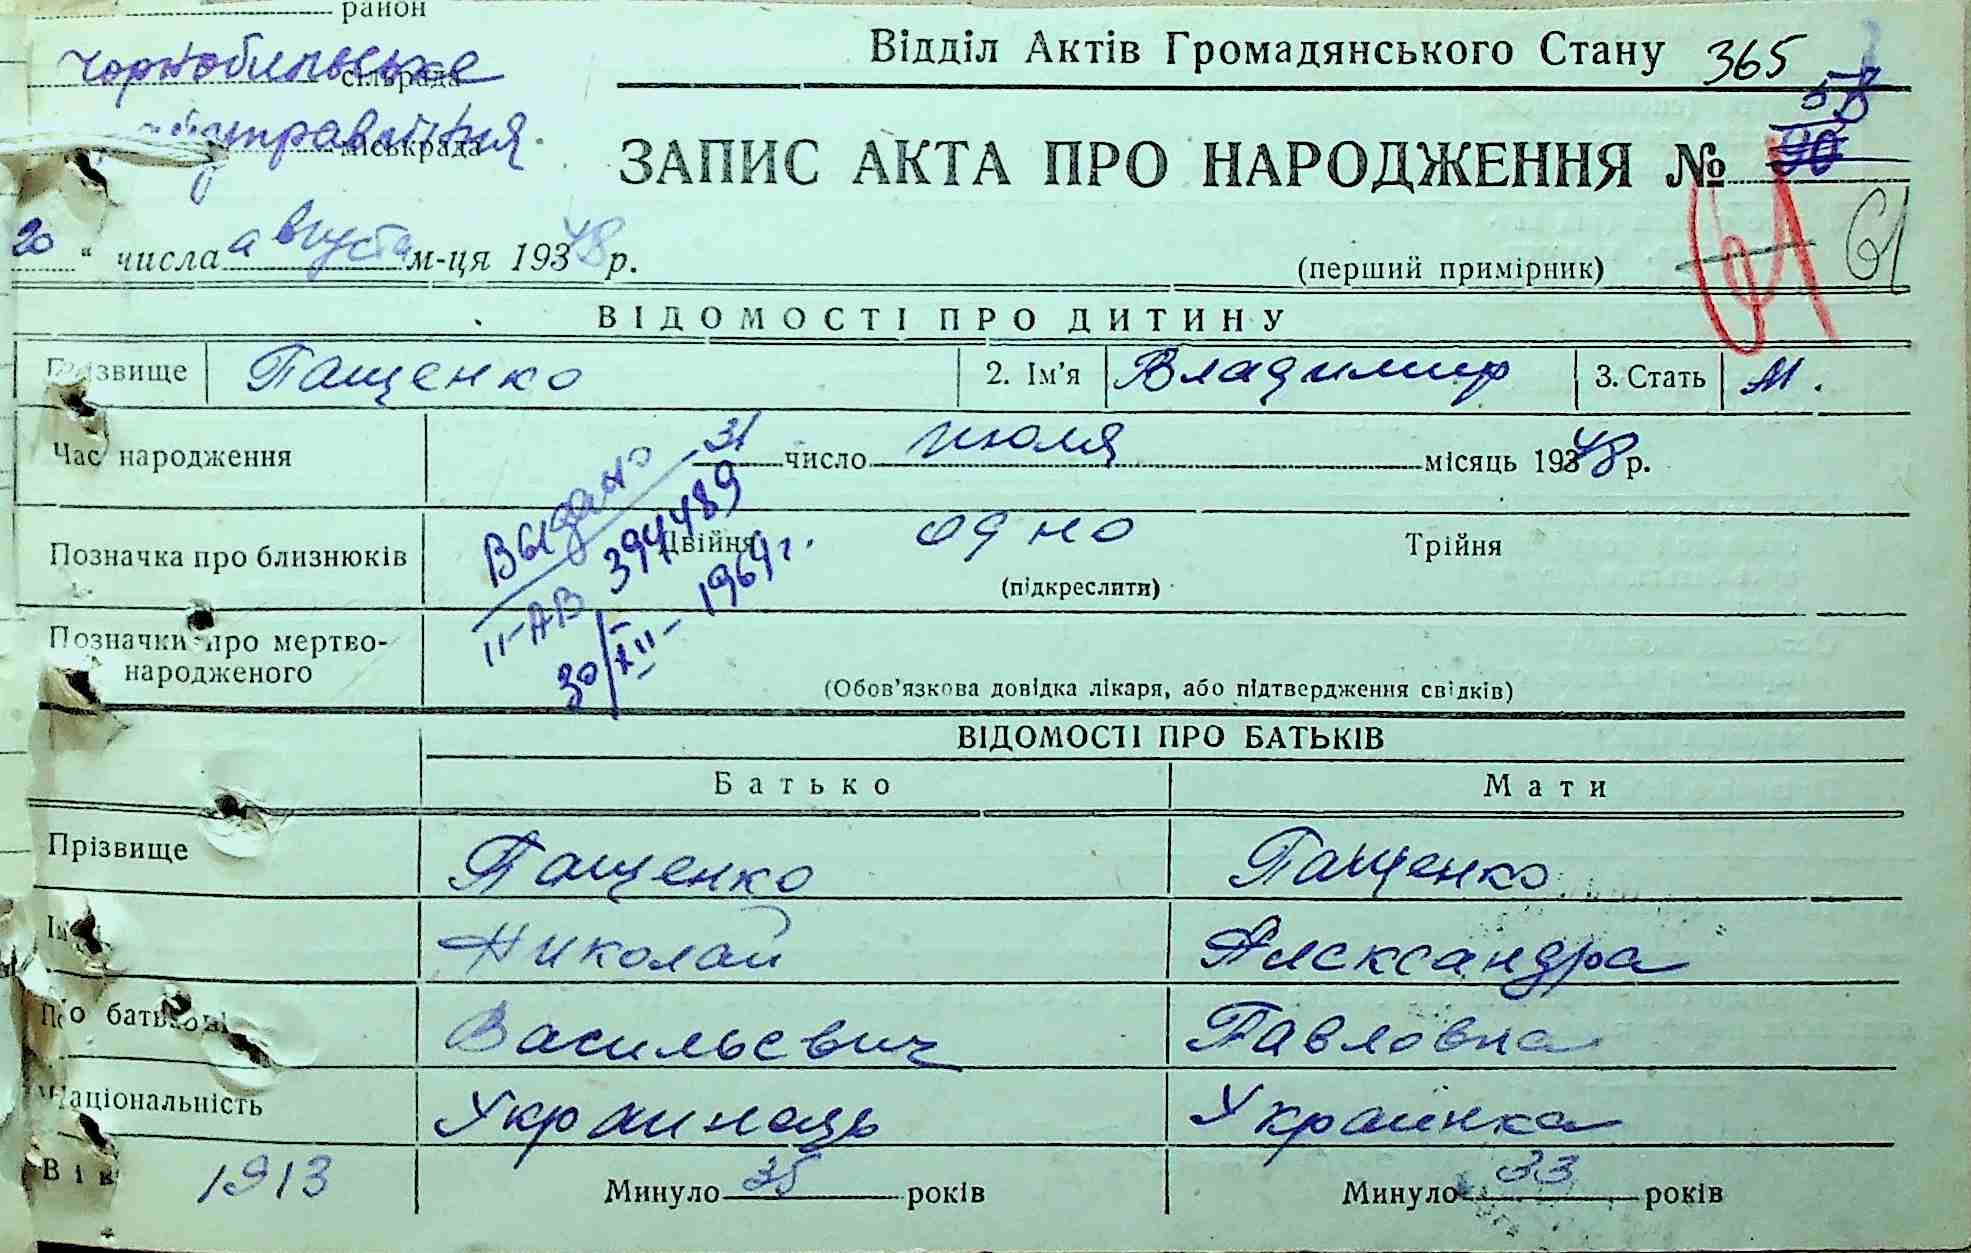 район
Чорнобильське сільрада
міськрада
Відділ Актів Громадянського Стану 365
58
ЗАПИС АКТА ПРО НАРОДЖЕННЯ № 90
61 61
20 " числа августа м-ця 193 48 р.
(перший примірник)
ВІДОМОСТІ ПРО ДИТИНУ
Прізвище Пащенко 2. Ім'я Владимир 3. Стать м.
Час народження 31 число июля місяць 193 48 р.
Позначка про близнюків Двійня одно Трійня
(підкреслити)
Выдано
II-АВ 394489
30/XII-1964 г.
Позначки про мертво-
народженого
(Обов'язкова довідка лікаря, або підтвердження свідків)
ВІДОМОСТІ ПРО БАТЬКІВ
Батько Мати
Прізвище Пащенко Пащенко
Николай Александра
По батькові Васильевич Павловна
Національність Украинець Украинка
Вік 1913 Минуло 35 років Минуло 33 років